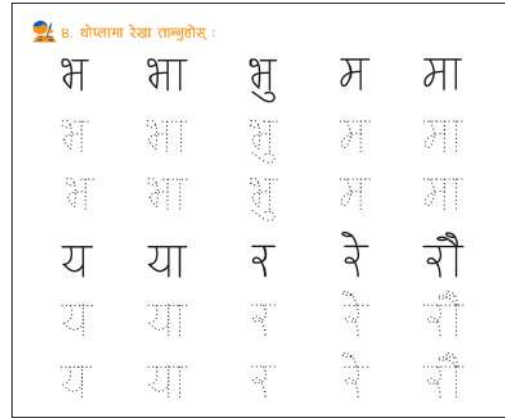 ४. थोप्लामा रेखा तान्नुहोस् :
भ भा भु म मा
भ भा भु म मा
भ भा भु म मा
य या र रे रौ
य या र रे रौ
य या र रे रौ